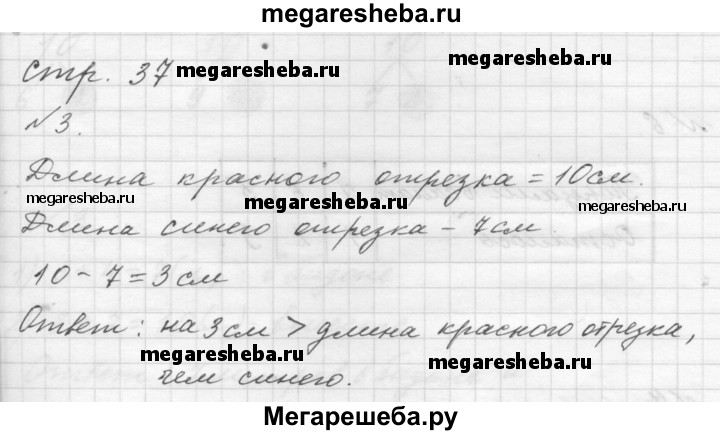 megaresheba.ru
стр. 37
megaresheba.ru
megaresheba.ru
№3.
Длина красного отрезка = 10 см.
megaresheba.ru
megaresheba.ru
megaresheba.ru
Длина синего отрезка – 7 см
10 - 7 = 3 см
Ответ: на 3 см > длина красного отрезка,
megaresheba.ru
megaresheba.ru
чем синего.
Мегарешеба.ру